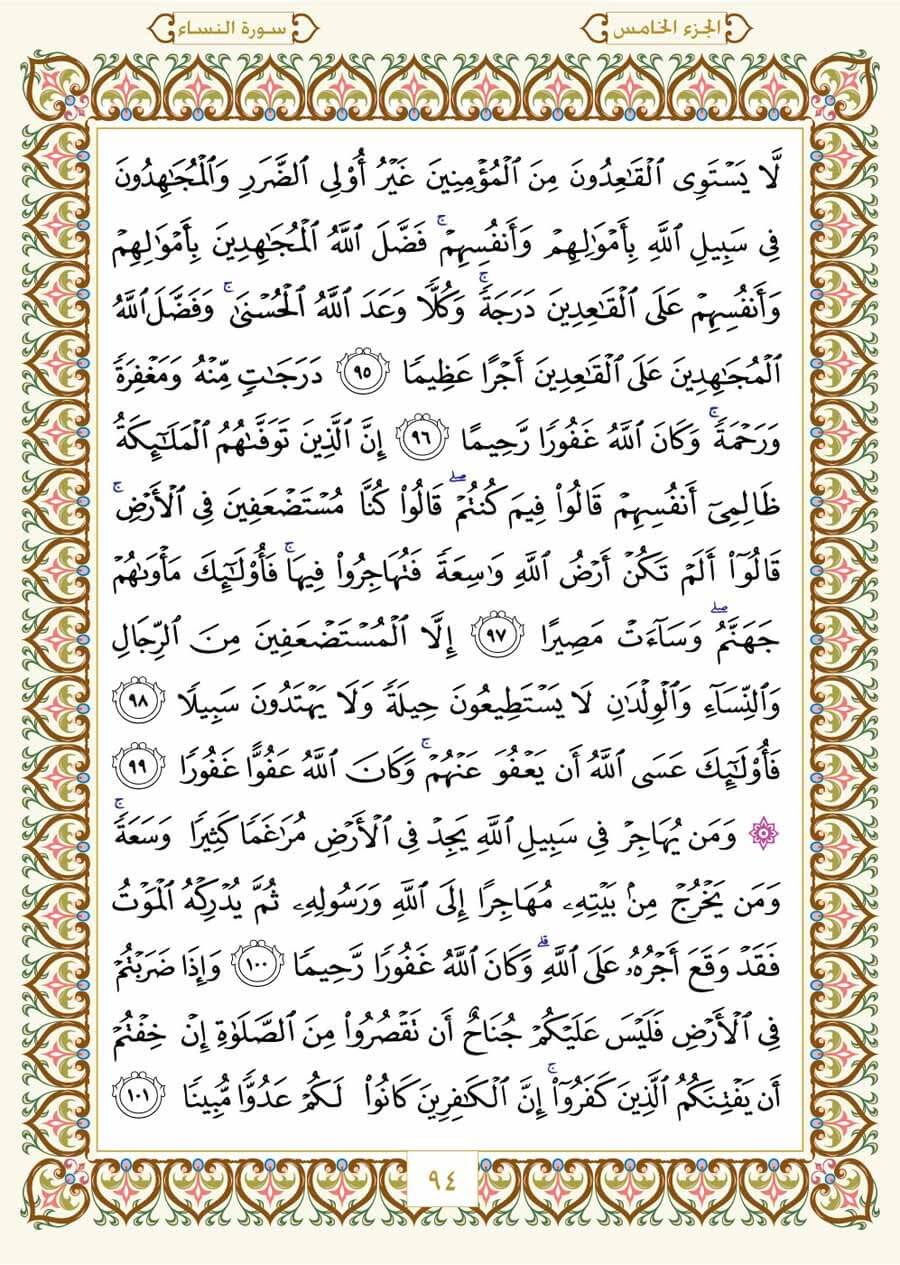 الجزء الخامس
سورة النساء
لَّا يَسۡتَوِي ٱلۡقَٰعِدُونَ مِنَ ٱلۡمُؤۡمِنِينَ غَيۡرُ أُوْلِي ٱلضَّرَرِ وَٱلۡمُجَٰهِدُونَ
فِي سَبِيلِ ٱللَّهِ بِأَمۡوَٰلِهِمۡ وَأَنفُسِهِمۡۚ فَضَّلَ ٱللَّهُ ٱلۡمُجَٰهِدِينَ بِأَمۡوَٰلِهِمۡ
وَأَنفُسِهِمۡ عَلَى ٱلۡقَٰعِدِينَ دَرَجَةٗۚ وَكُلّٗا وَعَدَ ٱللَّهُ ٱلۡحُسۡنَىٰۚ وَفَضَّلَ ٱللَّهُ
ٱلۡمُجَٰهِدِينَ عَلَى ٱلۡقَٰعِدِينَ أَجۡرًا عَظِيمٗا ٩٥ دَرَجَٰتٖ مِّنۡهُ وَمَغۡفِرَةٗ
وَرَحۡمَةٗۚ وَكَانَ ٱللَّهُ غَفُورٗا رَّحِيمًا ٩٦ إِنَّ ٱلَّذِينَ تَوَفَّىٰهُمُ ٱلۡمَلَٰٓئِكَةُ
ظَالِمِيٓ أَنفُسِهِمۡ قَالُواْ فِيمَ كُنتُمۡۖ قَالُواْ كُنَّا مُسۡتَضۡعَفِينَ فِي ٱلۡأَرۡضِۚ
قَالُوٓاْ أَلَمۡ تَكُنۡ أَرۡضُ ٱللَّهِ وَٰسِعَةٗ فَتُهَاجِرُواْ فِيهَاۚ فَأُوْلَٰٓئِكَ مَأۡوَىٰهُمۡ
جَهَنَّمُۖ وَسَآءَتۡ مَصِيرًا ٩٧ إِلَّا ٱلۡمُسۡتَضۡعَفِينَ مِنَ ٱلرِّجَالِ
وَٱلنِّسَآءِ وَٱلۡوِلۡدَٰنِ لَا يَسۡتَطِيعُونَ حِيلَةٗ وَلَا يَهۡتَدُونَ سَبِيلٗا ٩٨
فَأُوْلَٰٓئِكَ عَسَى ٱللَّهُ أَن يَعۡفُوَ عَنۡهُمۡۚ وَكَانَ ٱللَّهُ عَفُوًّا غَفُورٗا ٩٩
۞ وَمَن يُهَاجِرۡ فِي سَبِيلِ ٱللَّهِ يَجِدۡ فِي ٱلۡأَرۡضِ مُرَٰغَمٗا كَثِيرٗا وَسَعَةٗۚ
وَمَن يَخۡرُجۡ مِنۢ بَيۡتِهِۦ مُهَاجِرًا إِلَى ٱللَّهِ وَرَسُولِهِۦ ثُمَّ يُدۡرِكۡهُ ٱلۡمَوۡتُ
فَقَدۡ وَقَعَ أَجۡرُهُۥ عَلَى ٱللَّهِۗ وَكَانَ ٱللَّهُ غَفُورٗا رَّحِيمٗا ١٠٠ وَإِذَا ضَرَبۡتُمۡ
فِي ٱلۡأَرۡضِ فَلَيۡسَ عَلَيۡكُمۡ جُنَاحٌ أَن تَقۡصُرُواْ مِنَ ٱلصَّلَوٰةِ إِنۡ خِفۡتُمۡ
أَن يَفۡتِنَكُمُ ٱلَّذِينَ كَفَرُوٓاْۚ إِنَّ ٱلۡكَٰفِرِينَ كَانُواْ لَكُمۡ عَدُوّٗا مُّبِينٗا ١٠١
٩٤